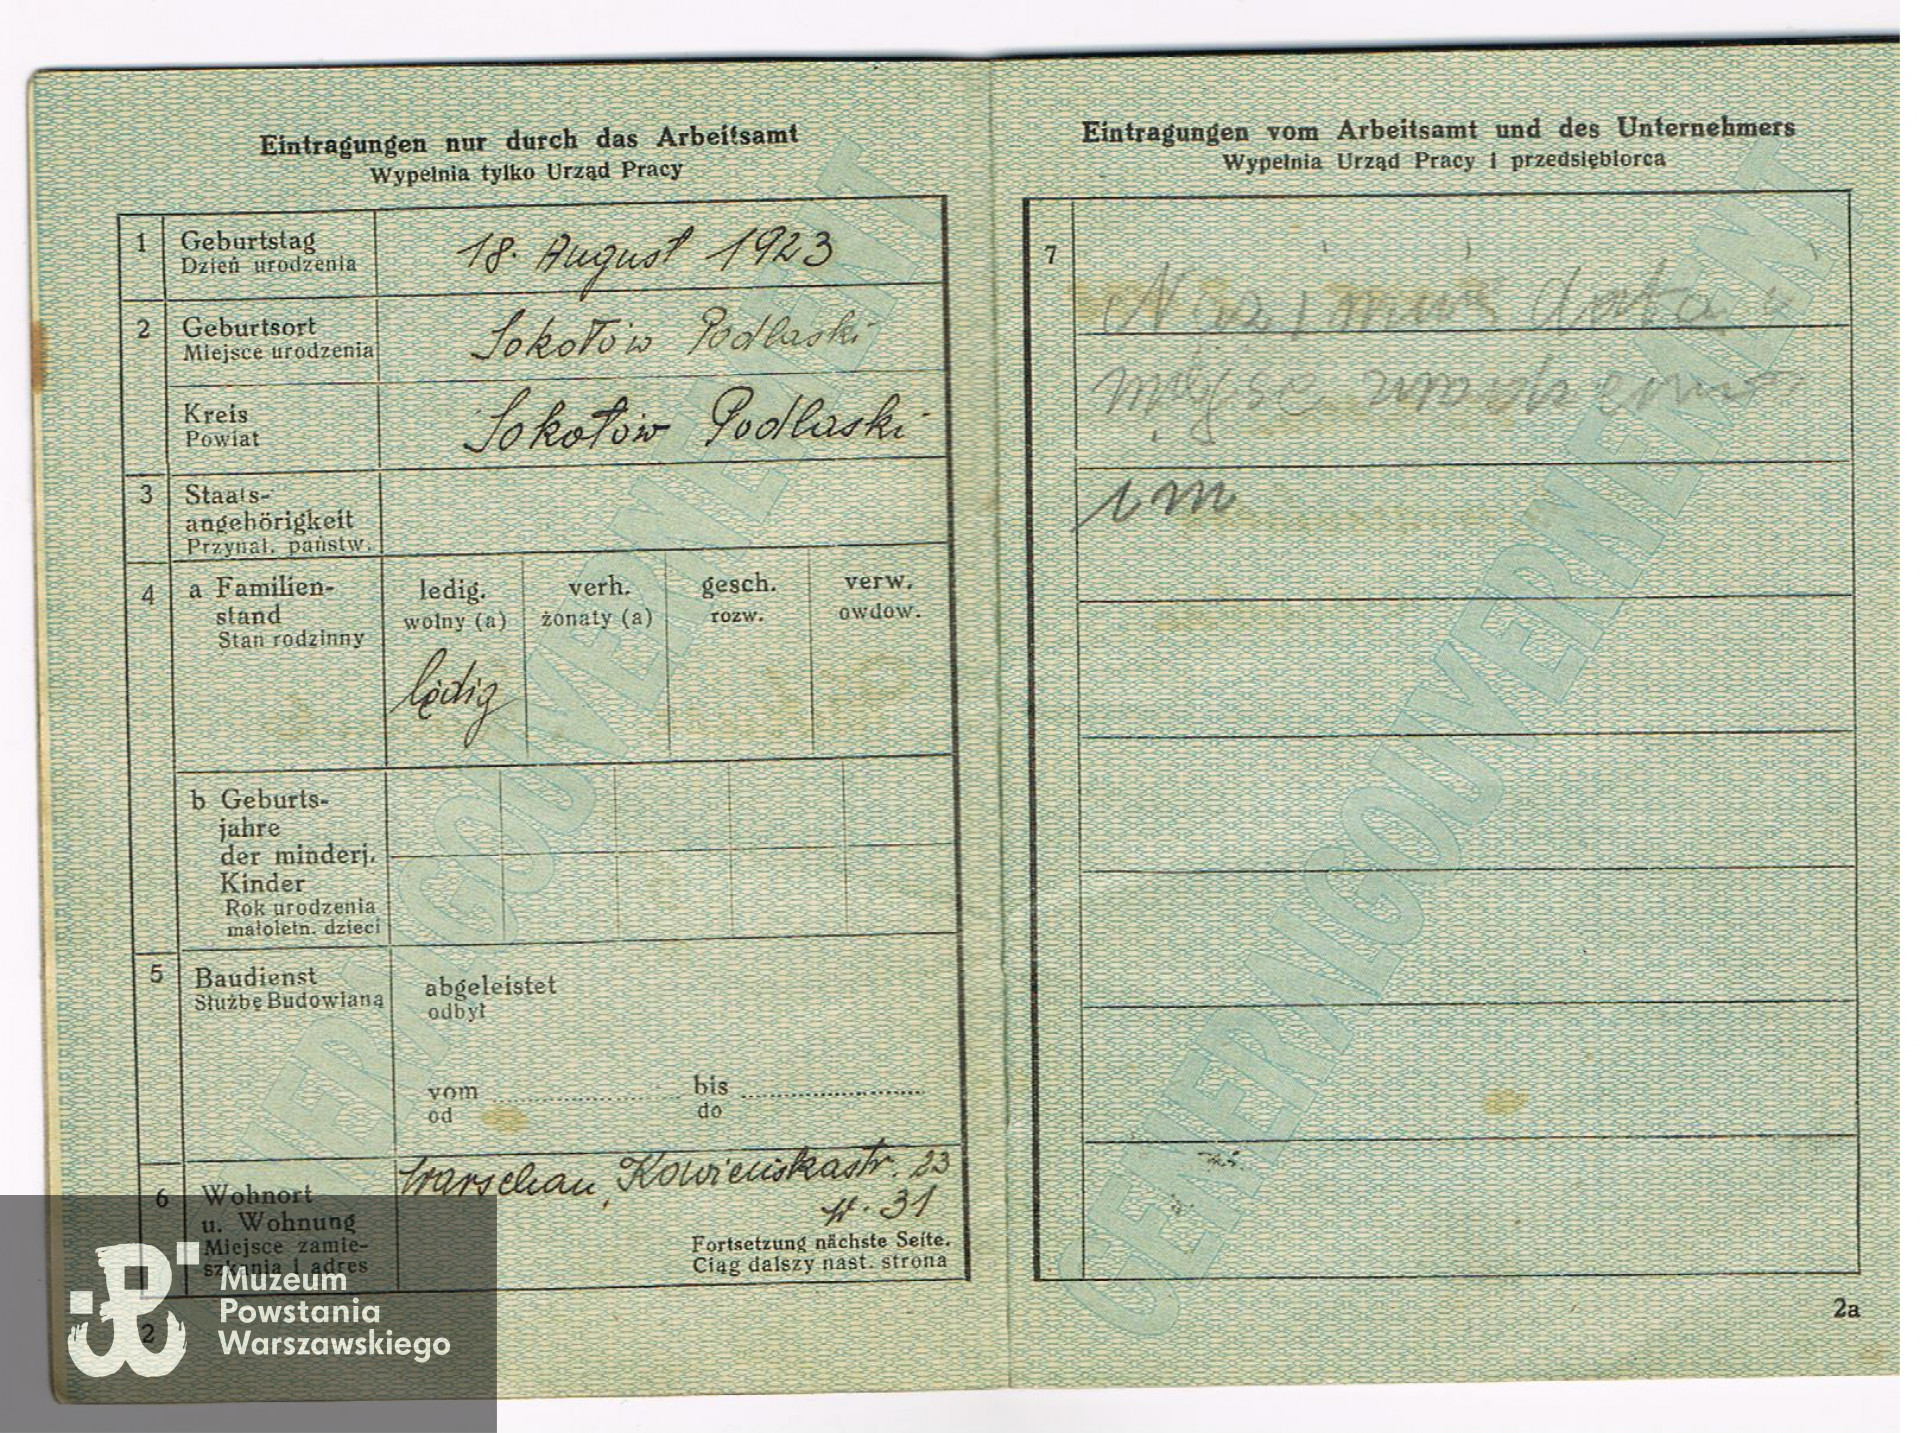 Eintragungen nur durch das Arbeitsamt
Wypełnia tylko Urząd Pracy
1 Geburtstag 18. August 1923
Dzień urodzenia
2 Geburtsort Sokołów Podlaski
Miejsce urodzenia
Kreis Sokołów Podlaski
Powiat
3 Staats-
angehörigkeit
Przynal. państw.
4 a Familien- ledig. verh. gesch. verw.
stand wolny (a) żonaty (a) rozw. owdow.
Stan rodzinny
lędig
b Geburts-
jahre
der minderj.
Kinder
Rok urodzenia
małoletn. dzieci
5 Baudienst abgeleistet
Służbę Budowlaną odbył
vom bis
od do
6 Wohnort Warschau, Kowieńskastr. 23
u. Wohnung 31
Miejsce zamie- Fortsetzung nächste Seite.
szkania i adres Ciąg dalszy nast. strona
2
Muzeum
Powstania
Warszawskiego
Eintragungen vom Arbeitsamt und des Unternehmers
Wypełnia Urząd Pracy i przedsiębiorca
7
im
2a
GENERALGOUVERNEMENT